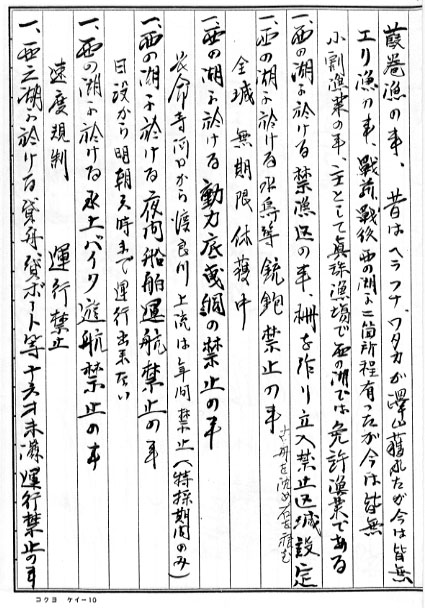 葭巻漁の事、昔はヘラフナ、ワタカが澤山獲れたが今は皆無
エリ漁の事、戦前、戦後西の湖に二箇所程有ったが今は皆無
小割漁業の事、主として真珠漁場で西の湖では免許漁業である
一、西の湖に於ける禁漁区の事、柵を作り立入禁止区域設定
一、西の湖に於ける水鳥等銃鉋禁止の事
全域無期限休獲中
一、西の湖に於ける動力底曳網の禁止の事
長命寺河口から渡良川上流は年間禁止(特採期間のみ)
一、西の湖に於ける夜間船舶運航禁止の事
日没から明朝六時まで運行出来ない
一、西の湖に於ける水上バイク遊航禁止の事
速度規制 運行禁止
一、西之湖に於ける貸舟貸ボート等十六才未満運行禁止の事
コクヨ ケイー10